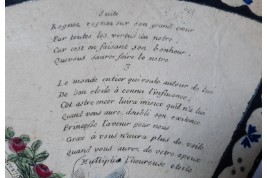 Suite
Regnez, regnez sur son grand cœur
Par toutes les vertus du notre
Car c'est en faisant son bonheur
Que vous saurez faire le notre
3
Le monde entier qui roule autour de lui
De son étoile à connu l'influence;
Cet astre mer luira mieux qu'il n'a lui
Quand vous aurez, doublé son existence
l'avenir pour nous
Car à vous n'aura plus de voile
Quand vous aurez de notre époux
Multiplié l'heureuse étoile